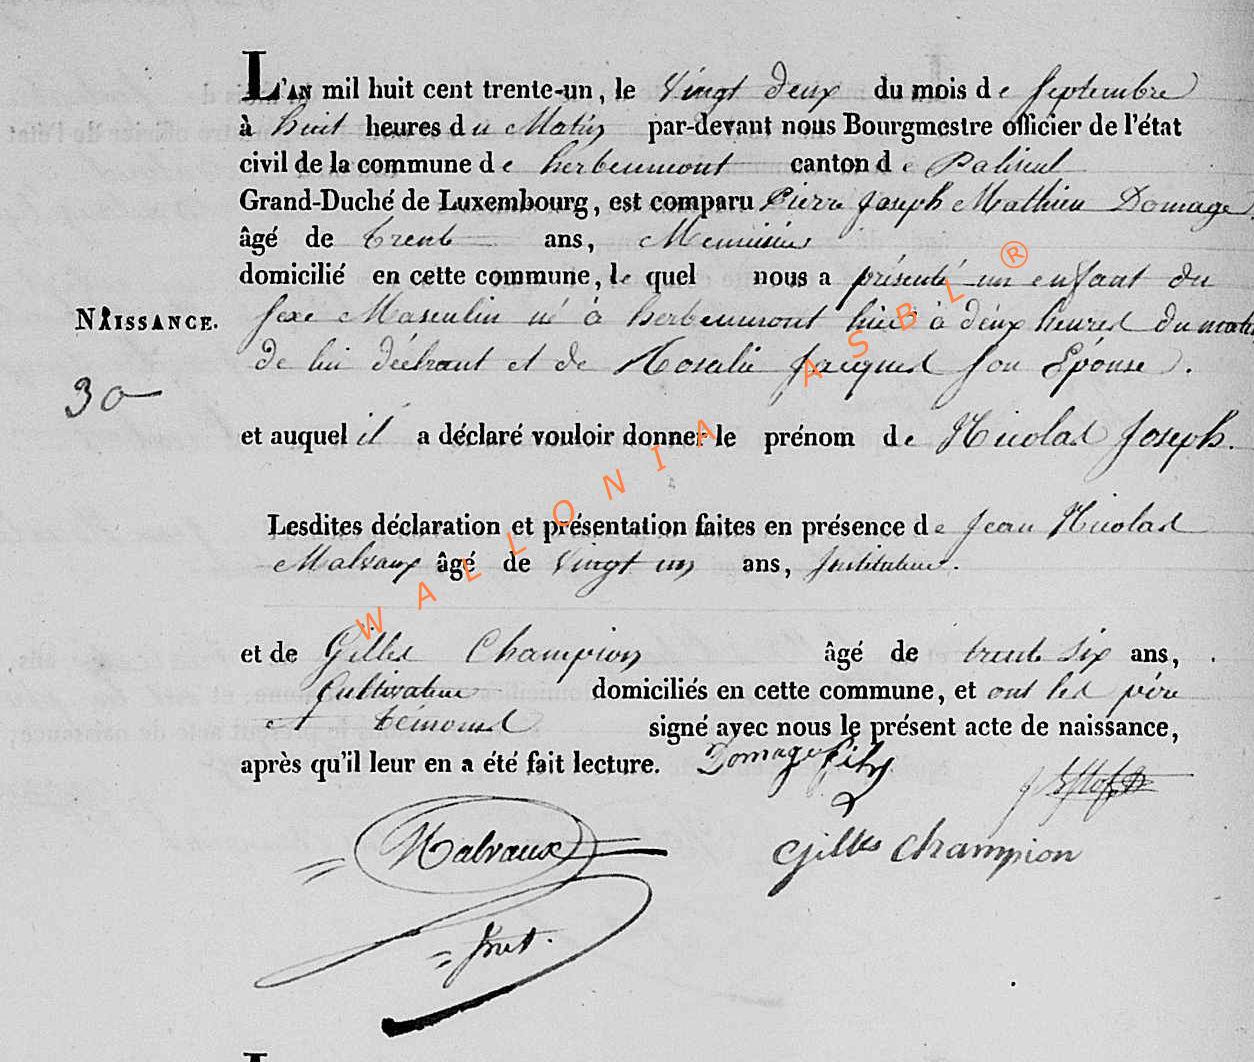 L'AN mil huit cent trente-un, le Vingt deux du mois de Septembre
à huit heures du Matin par-devant nous Bourgmestre officier de l'état
civil de la commune de herbeumont canton de Paliseul
Grand-Duché de Luxembourg, est comparu Pierre Joseph Mathieu Domage
âgé de trente ans, Menuisier
domicilié en cette commune, le quel nous a présenté un enfant du
NAISSANCE. sexe Masculin né à herbeumont hier à deux heures du matin
de lui déclarant et de Rosalie Jacques son Epouse.
30
et auquel il a déclaré vouloir donner le prénom de Nicolas Joseph.
Lesdites déclaration et présentation faites en présence de Jean Nicolas
Malvaux âgé de Vingt un ans, Instituteur.
et de Gilles Champion âgé de trente six ans,
Cultivateur domiciliés en cette commune, et ont les père
et témoins signé avec nous le présent acte de naissance,
après qu'il leur en a été fait lecture. Domage fils
Malvaux
Gilles Champion
Inst.
WALLONIA ASBL ®